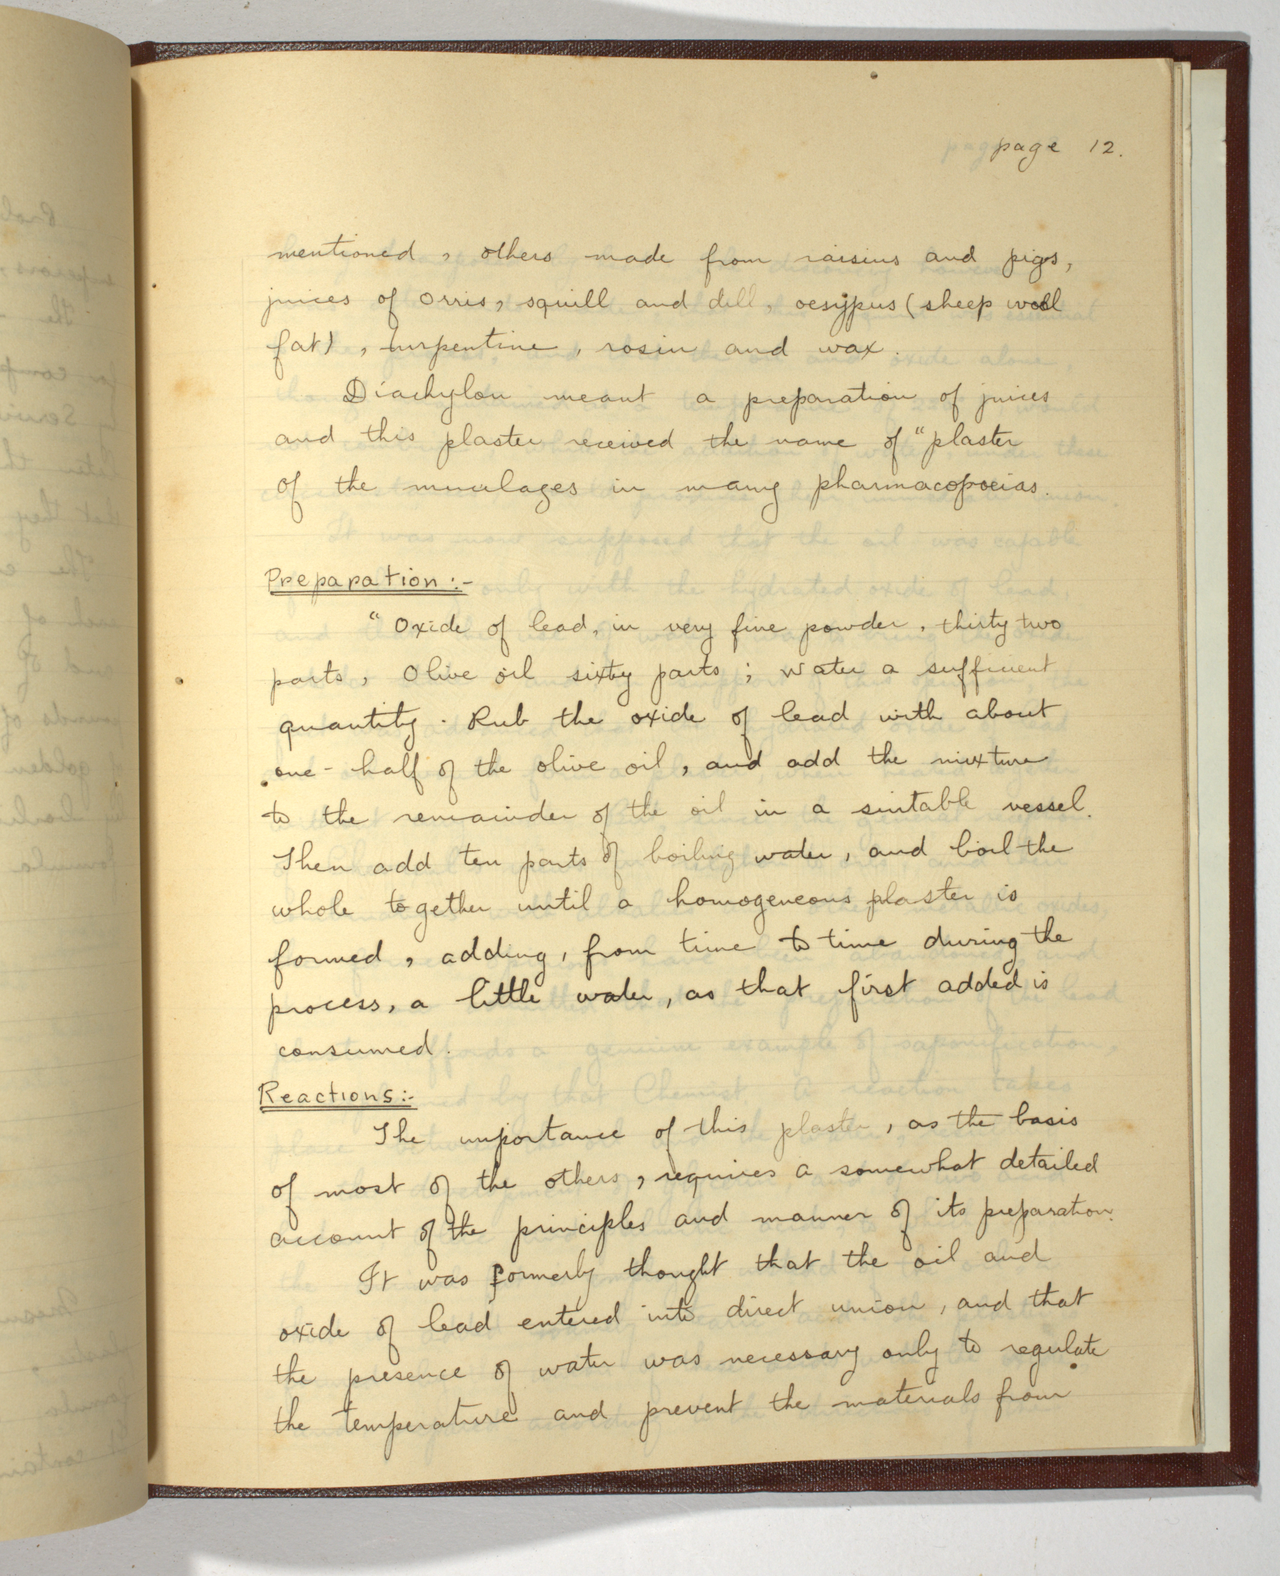 page 12.
mentioned, others made from raisins and pigs,
juices of Orris, squill and dill, oesypus (sheep wool
fat), turpentine, rosin and wax.
Diachylon meant a preparation of juices
and this plaster received the name of "plaster
of the mucilages in many pharmacopoeias.
Preparation:-
"Oxide of lead, in very fine powder, thirty two
parts, Olive oil sixty parts; water a sufficient
quantity. Rub the oxide of lead with about
one-half of the olive oil, and add the mixture
to the remainder of the oil in a suitable vessel.
Then add ten parts of boiling water, and boil the
whole together until a homogeneous plaster is
formed, adding, from time to time during the
process, a little water, as that first added is
consumed.
Reactions:-
The importance of this plaster, as the basis
of most of the others, requires a somewhat detailed
account of the principles and manner of its preparation.
It was formerly thought that the oil and
oxide of lead entered into direct union, and that
the presence of water was necessary only to regulate
the temperature and prevent the materials from